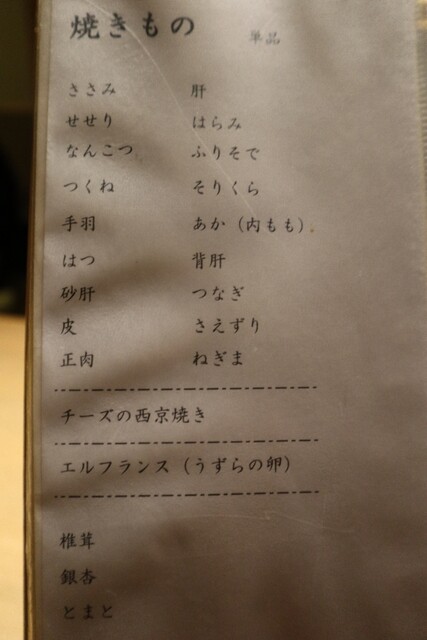 焼きもの 単品
ささみ 肝
せせり はらみ
なんこつ ふりそで
つくね そりくら
手羽 あか（内もも）
はつ 背肝
砂肝 つなぎ
皮 さえずり
正肉 ねぎま
チーズの西京焼き
エルフランス（うずらの卵）
椎茸
銀杏
とまと